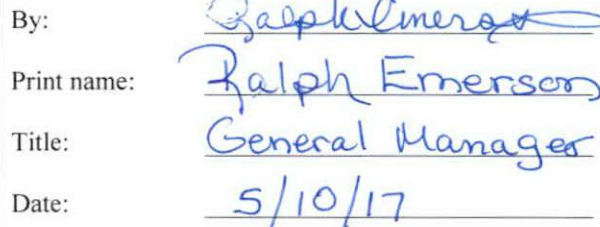 By: Ralph Emerson
Print name: Ralph Emerson
Title: General Manager
Date: 5/10/17